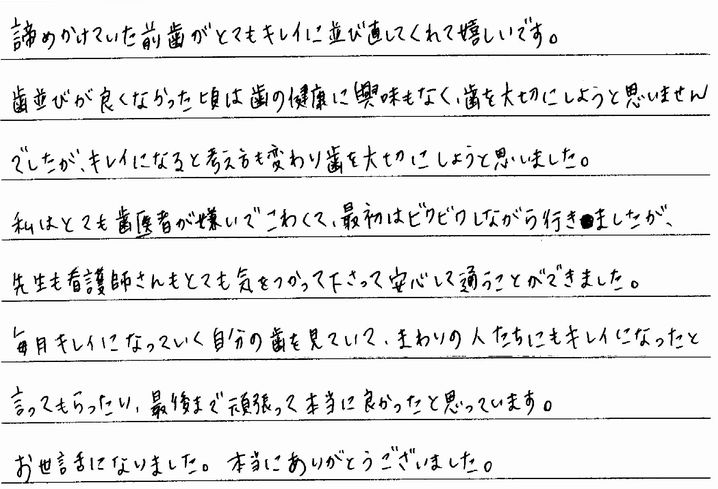 諦めかけていた前歯がとてもキレイに並び直してくれて嬉しいです。
歯並びが良くなかった頃は歯の健康に興味もなく、歯を大切にしようと思いません
でしたが、キレイになると考え方も変わり歯を大切にしようと思いました。
私はとても歯医者が嫌いでこわくて、最初はビクビクしながら行きましたが、
先生も看護師さんもとても気をつかって下さって安心して通うことができました。
毎月キレイになっていく自分の歯を見ていて、まわりの人たちにもキレイになったと
言ってもらったり、最後まで頑張って本当に良かったと思っています。
お世話になりました。本当にありがとうございました。